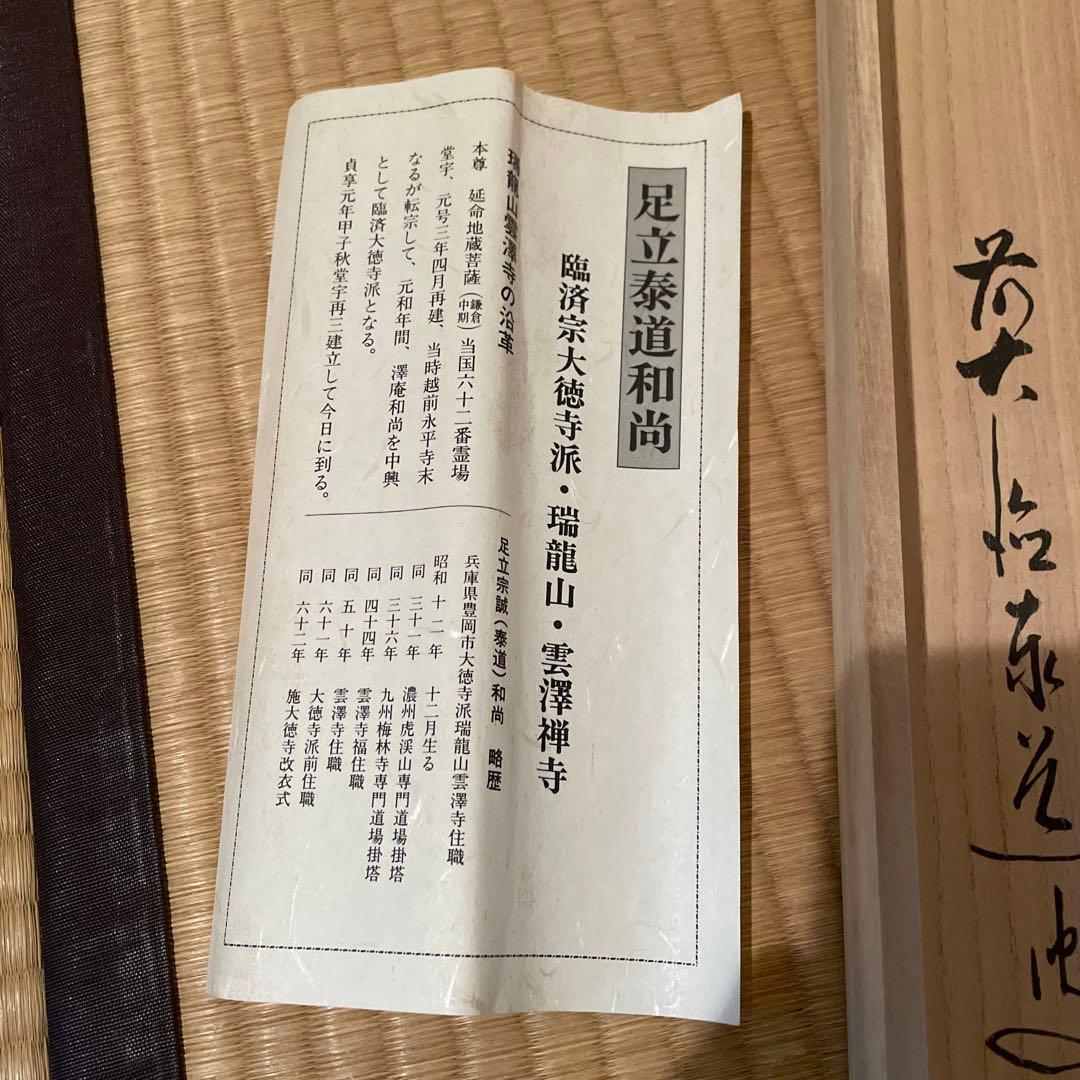 足立泰道和尚
臨済宗大徳寺派・瑞龍山・雲澤禅寺
瑞龍山雲澤寺の沿革
本尊 延命地蔵菩薩(鎌倉中期)当国六十二番霊場
堂宇、元号三年四月再建、当時越前永平寺末
なるが転宗して、元和年間、澤庵和尚を中興
として臨済大徳寺派となる。
貞享元年甲子秋堂宇再三建立して今日に到る。
足立宗誠(泰道)和尚 略歴
兵庫県豊岡市大徳寺派瑞龍山雲澤寺住職
昭和 十二年 十二月生る
同 三十一年 濃州虎渓山専門道場掛塔
同 三十六年 九州梅林寺専門道場掛塔
同 四十四年 雲澤寺福住職
同 五十年 雲澤寺住職
同 六十一年 大徳寺派前住職
同 六十二年 施大徳寺改衣式
前大
泰道